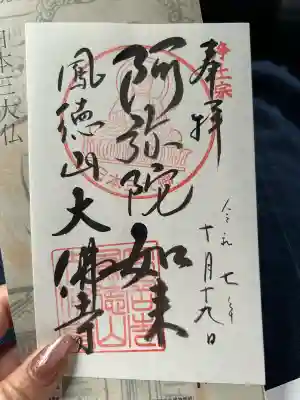 浄土宗
奉拝
令和七年
十月十九日
阿弥陀如来
鳳徳山大佛寺
日本三大仏